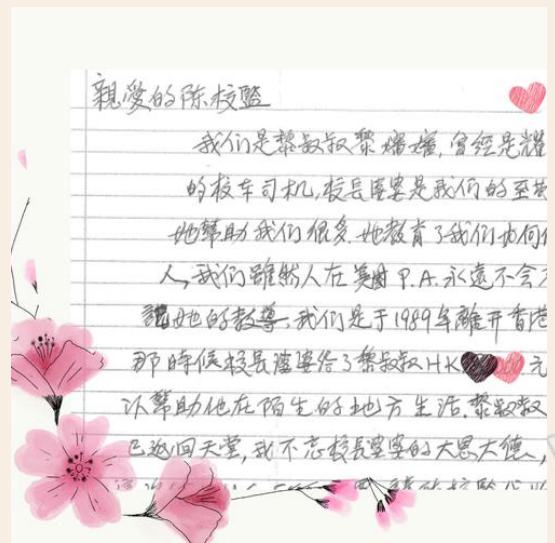 親愛的陈校監
我们是黎叔叔黎嬸嬸,曾经是耀
的校车司机,校長婆婆是我们的至
她幫助我们很多,她教育了我们如何
人,我们雖然人在美國 P.A. 永遠不会
她的教導,我们是于1989年離开香港
那時候校長婆婆给了黎叔叔HK 元
以幫助他在陌生的地方生活,黎叔叔
已返回天堂,我不忘校長婆婆的大恩大德,